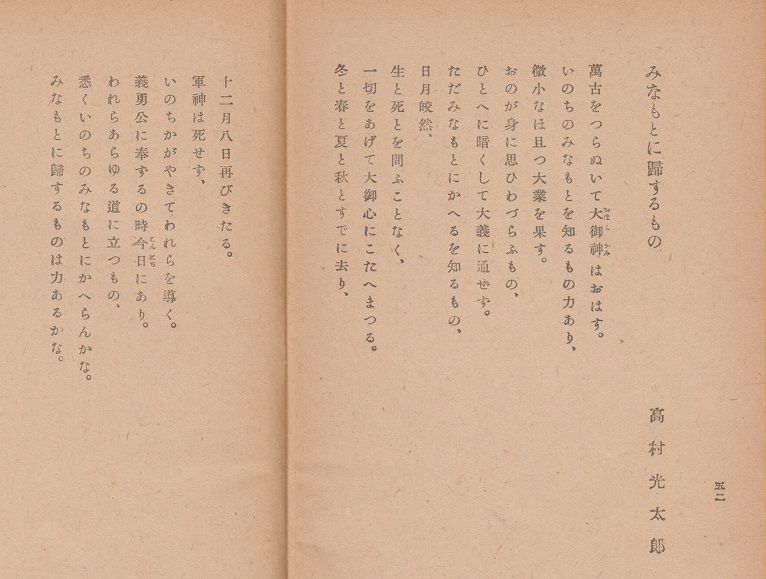 みなもとに歸するもの
高村光太郎
萬古をつらぬいて大御神はおはす。
いのちのみなもとを知るもの力あり、
微小なほ且つ大業を果す。
おのが身に思ひわづらふもの、
ひとへに暗くして大義に通せず。
ただみなもとにかへるを知るもの、
日月皎然、
生と死とを問ふことなく、
一切をあげて大御心にこたへまつる。
冬と春と夏と秋とすでに去り、
十二月八日再びきたる。
軍神は死せず、
いのちかがやきてわれらを導く。
義勇公に奉ずるの時今日にあり。
われらあらゆる道に立つもの、
悉くいのちのみなもとにかへらんかな。
みなもとに歸するものは力あるかな。
五二